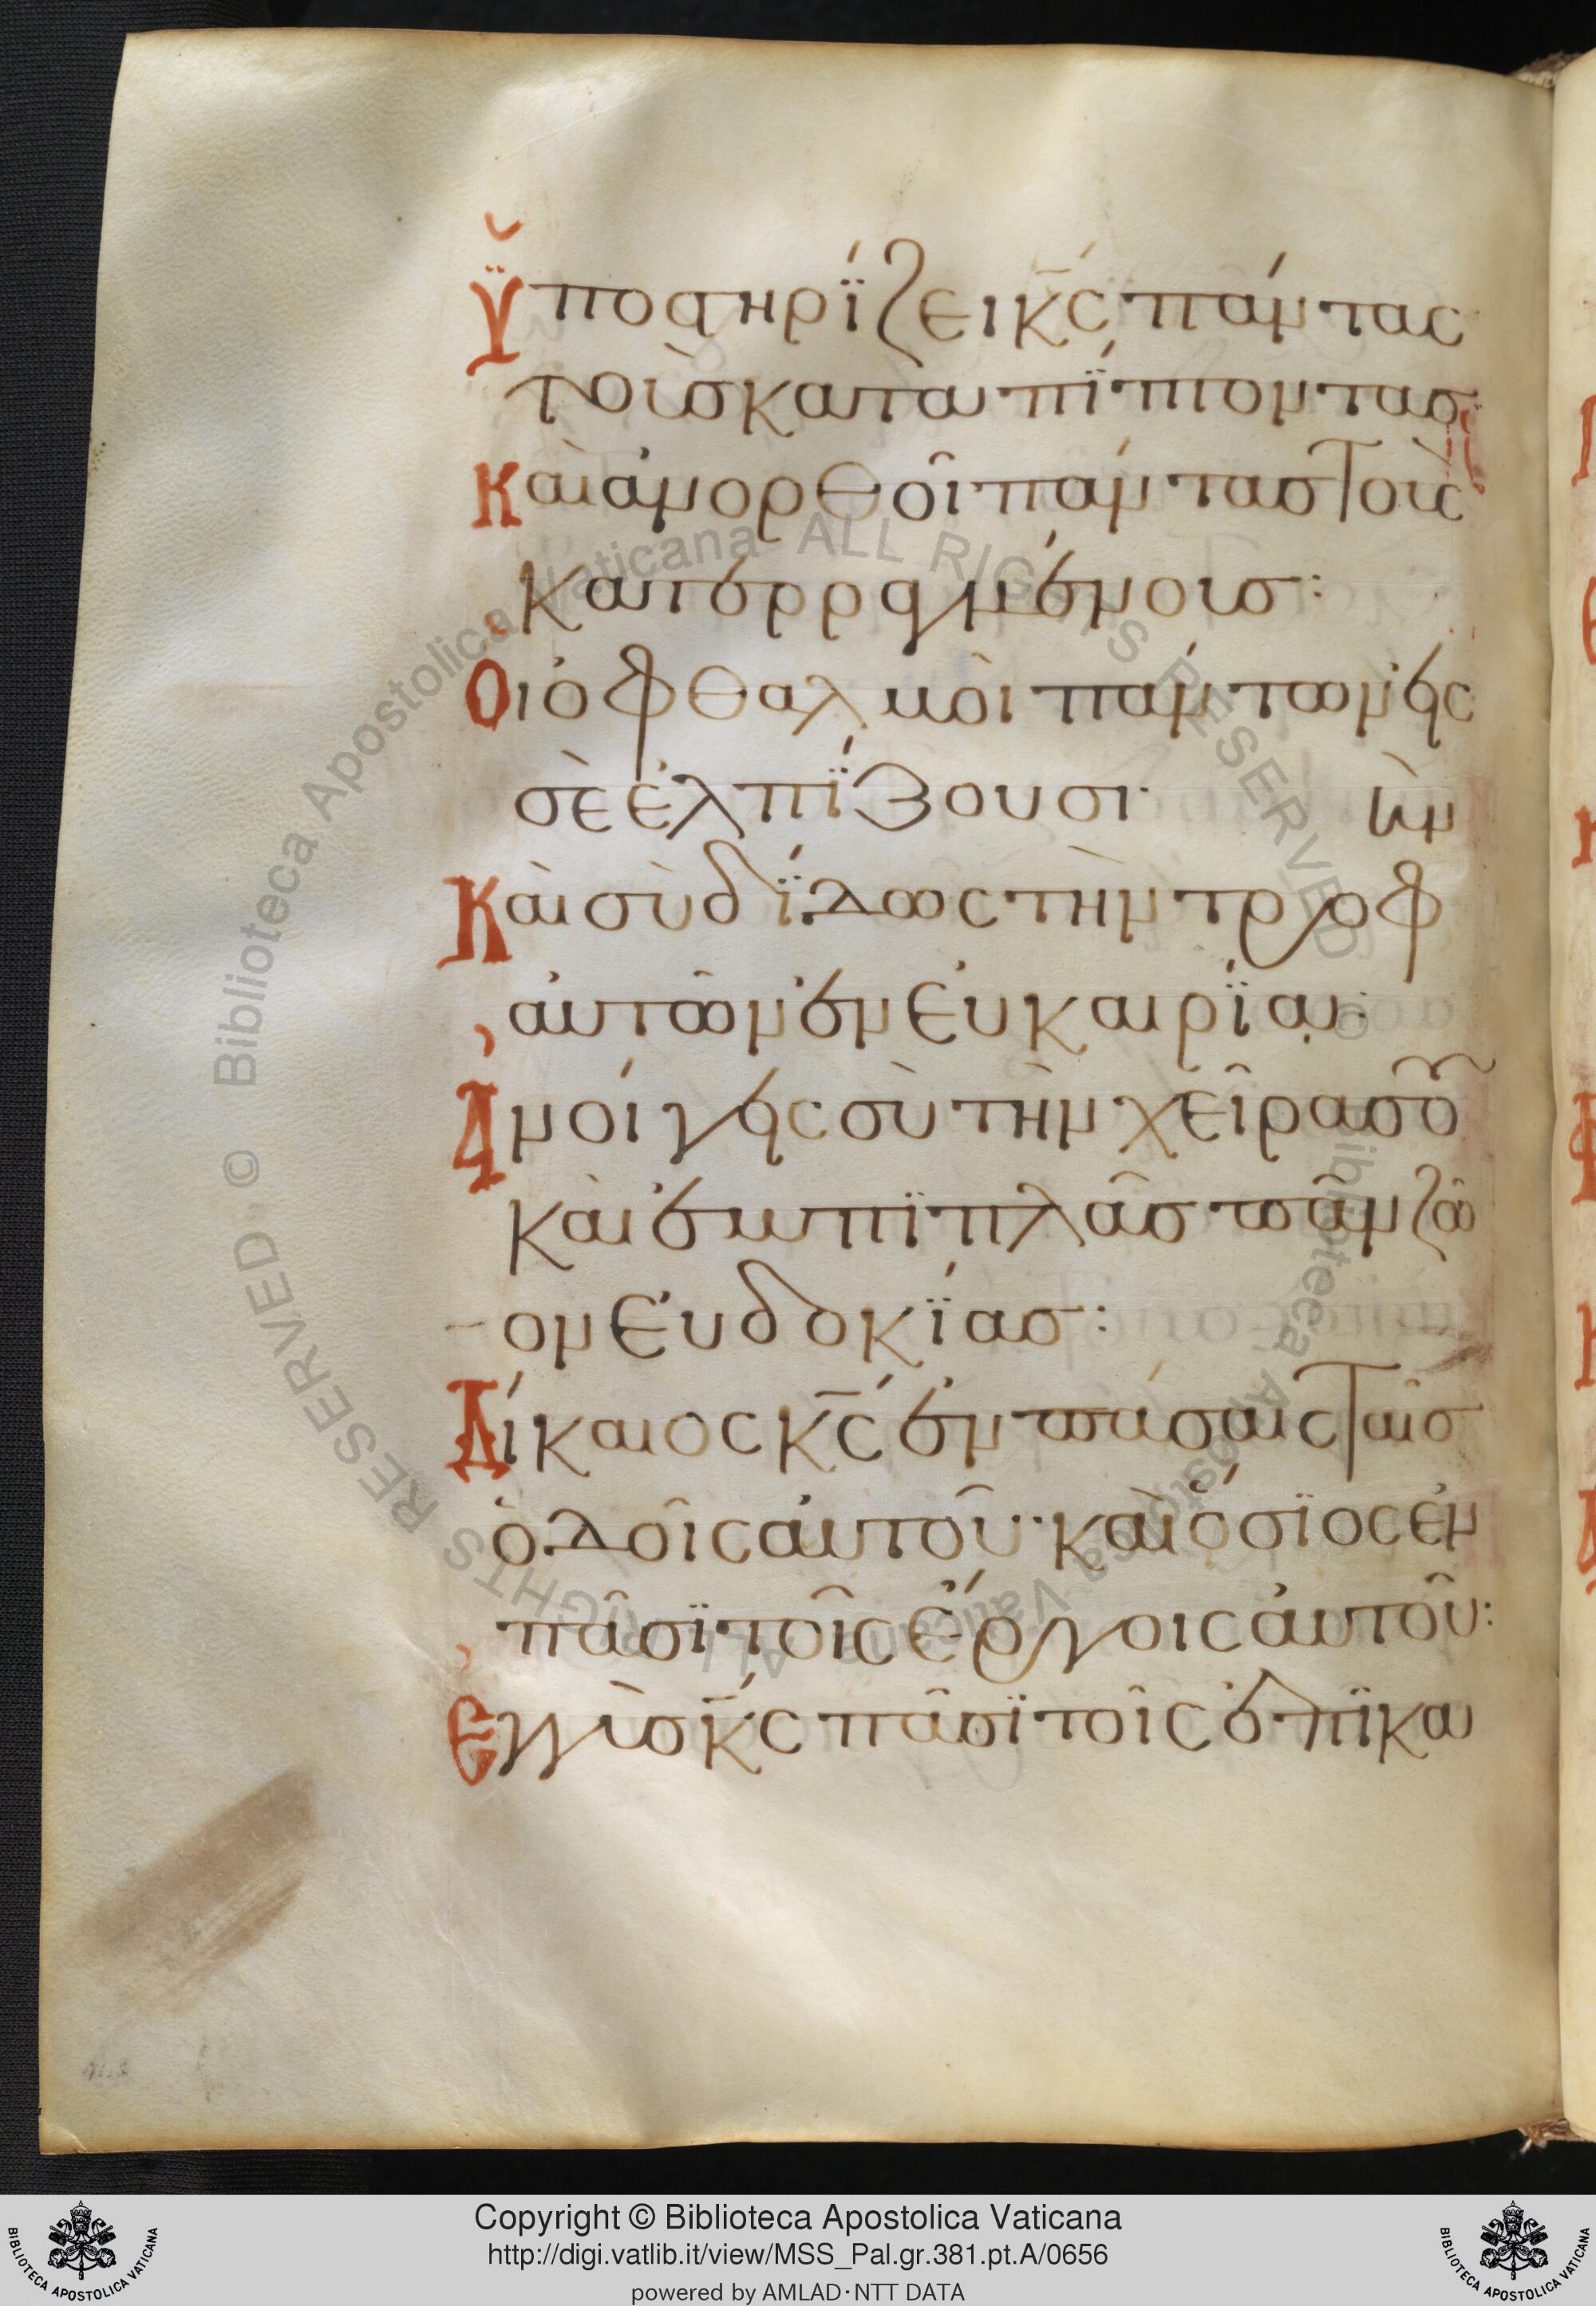 Ὑποστηρΐζει κ̅ς πάντας
τοὺς καταπΐπτοντας·
Καὶ ἀνορθοῖ πάντας τοὺς
κατερραγμένους:
Οἱ ὀφθαλμοὶ πάντων εἰς
σὲ ἐλπΐζουσι·
Καὶ σὺ δΐδως τὴν τροφ
ὴν
αὐτῶν ἐν εὐκαιρΐαν:
Ἀνοίγεις σὺ τὴν χεῖρα σου
καὶ ἐμπϊπλᾶς πᾶν ζῶ
ον εὐδοκΐας:
Δίκαιος κ̅ς ἐν πάσαις ταῖς
ὁδοῖς αὐτοῦ· καὶ ὅσϊος ἐν
πᾶσϊ τοῖς ἔργοις αὐτοῦ:
Ἐγγὺς κ̅ς πᾶσϊ τοῖς ἐπϊκα
Copyright © Biblioteca Apostolica Vaticana
http://digi.vatlib.it/view/MSS_Pal.gr.381.pt.A/0656
powered by AMLAD·NTT DATA
BIBLIOTECA APOSTOLICA VATICANA
BIBLIOTECA APOSTOLICA VATICANA
© Biblioteca Apostolica Vaticana ALL RIGHTS RESERVED
© Biblioteca Apostolica Vaticana ALL RIGHTS RESERVED